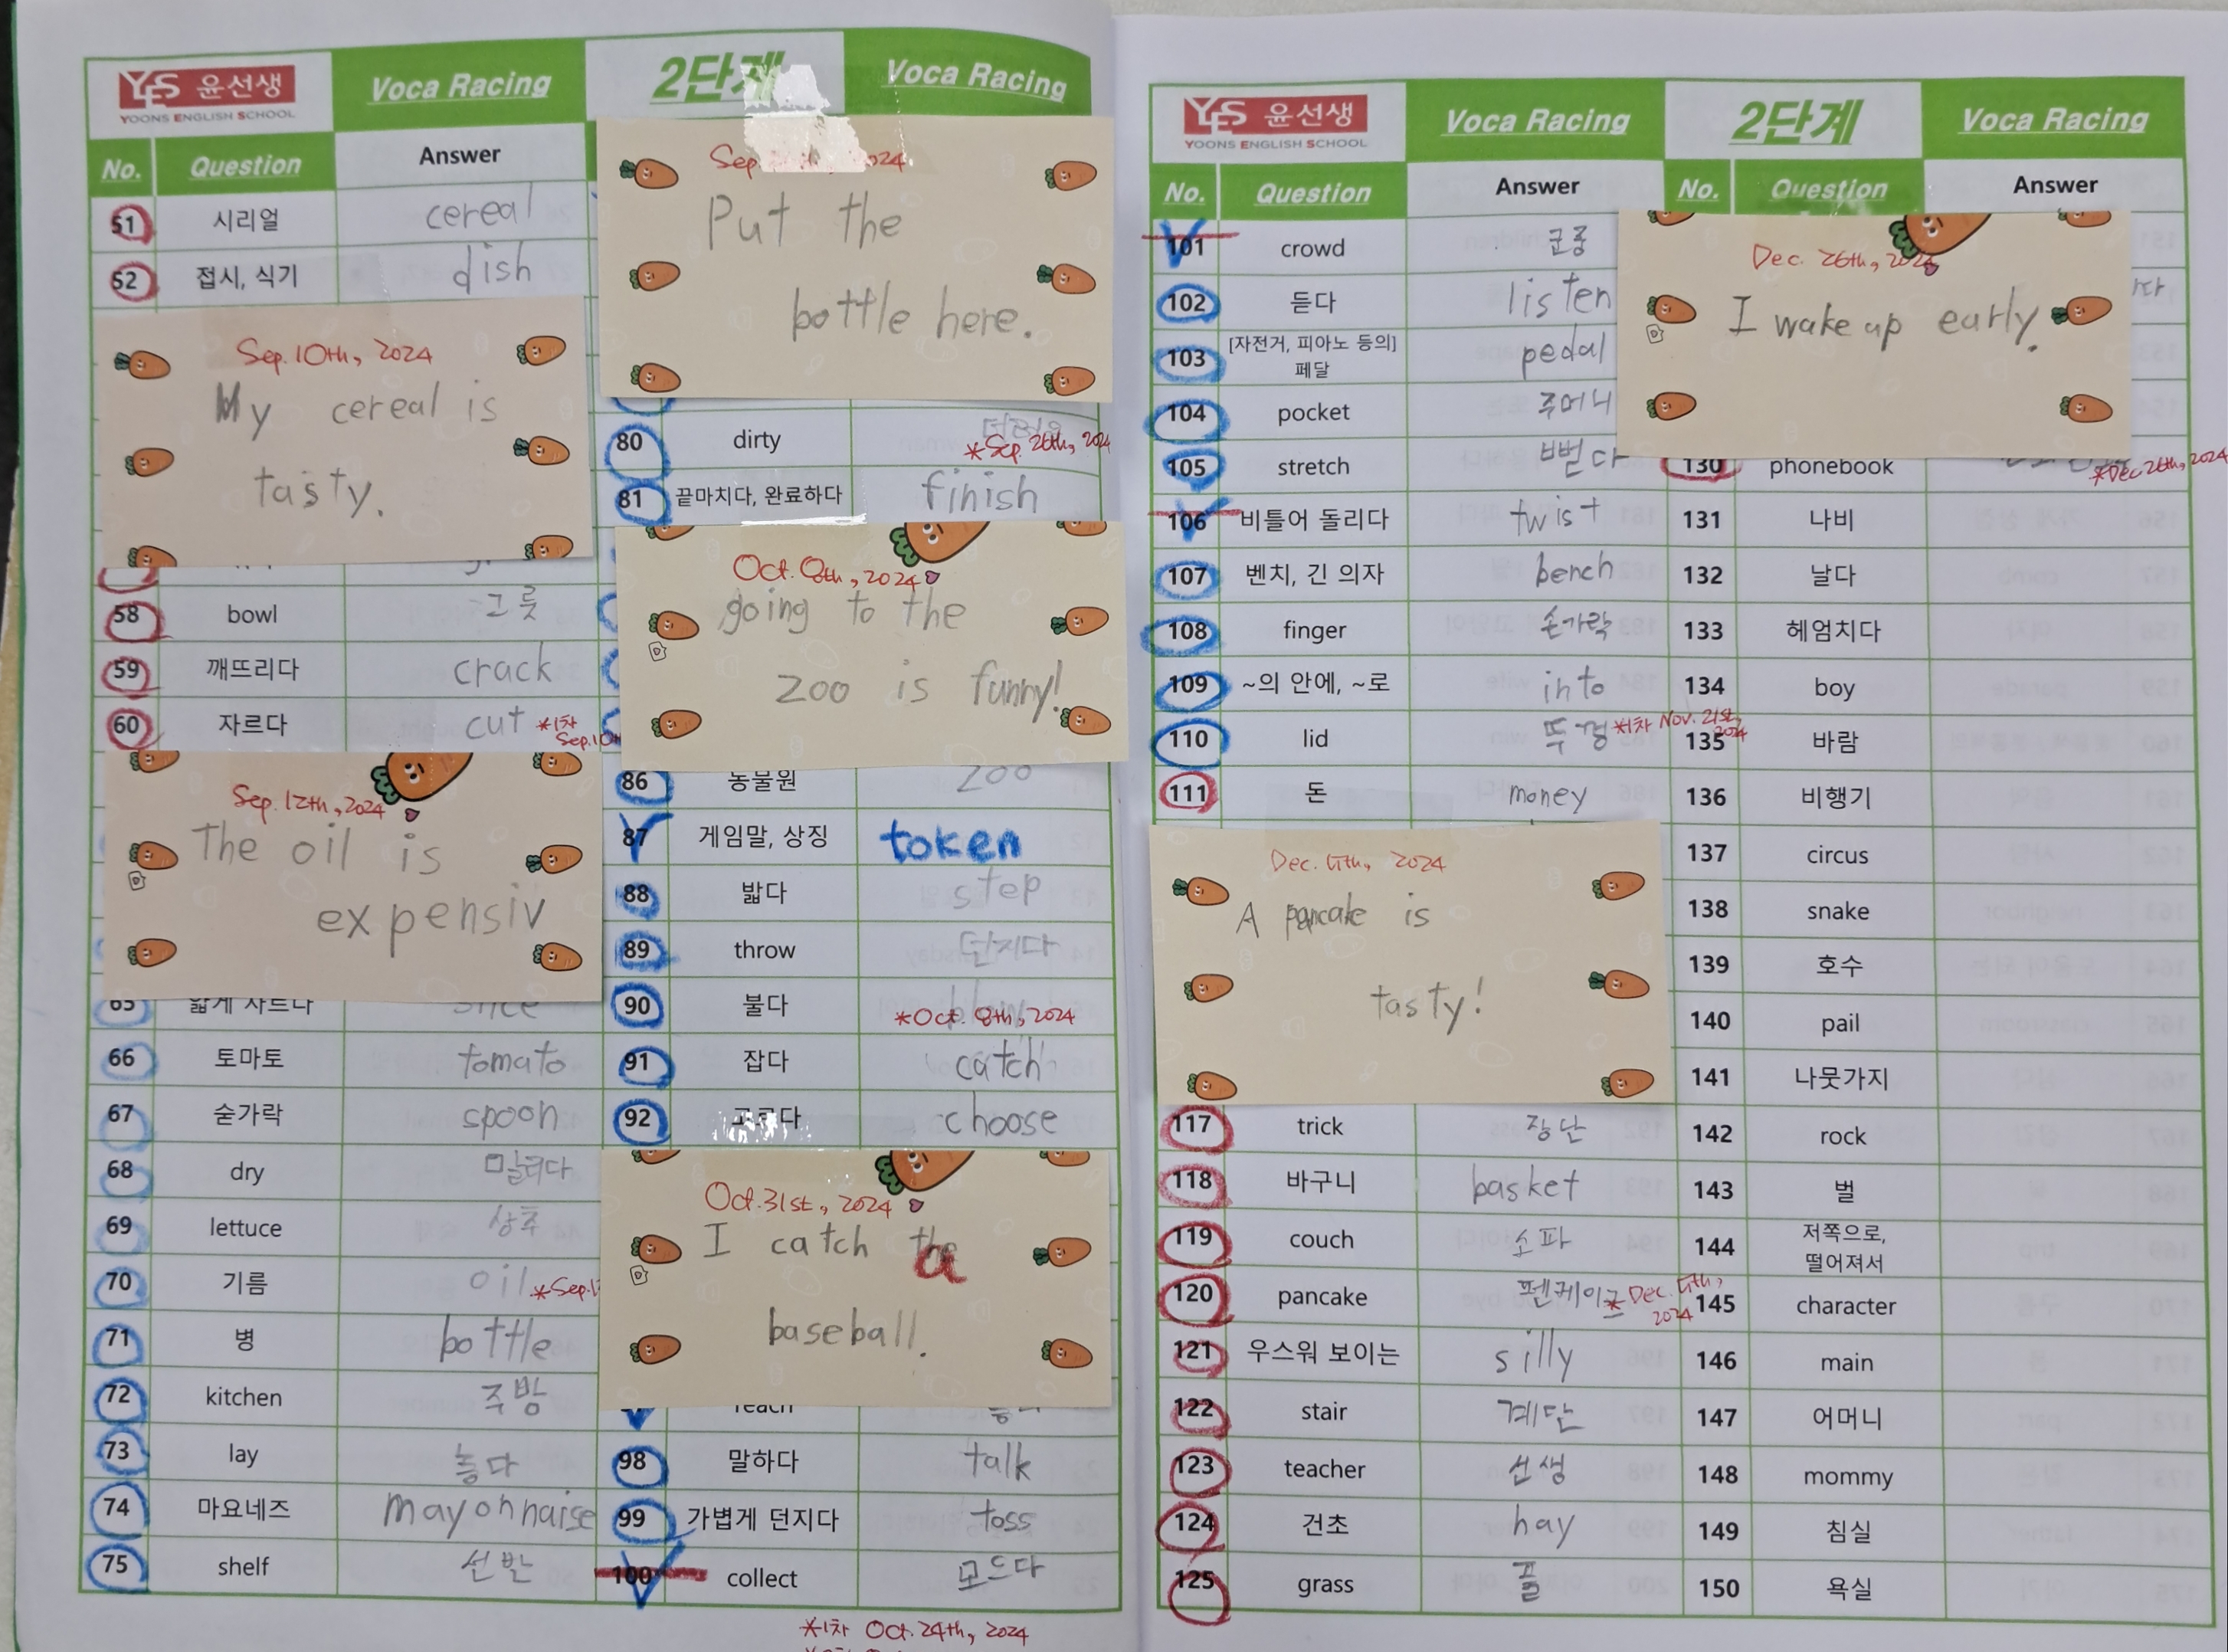 YES 윤선생
YOONS ENGLISH SCHOOL
Voca Racing
2단계
Voca Racing
No. Question Answer
51 시리얼 cereal
52 접시, 식기 dish
Sep. 10th, 2024
My cereal is
tasty.
58 bowl 그릇
59 깨뜨리다 crack
60 자르다 cut *1차
Sep. 10th
Sep. 12th, 2024
The oil is
expensiv
65 얇게 자르다 slice
66 토마토 tomato
67 숟가락 spoon
68 dry 말리다
69 lettuce 상추
70 기름 oil *Sep.1
71 병 bottle
72 kitchen 주방
73 lay 놓다
74 마요네즈 mayonnaise
75 shelf 선반
Sep. 2024
Put the
bottle here.
80 dirty 더러운
*Sep. 26th, 2024
81 끝마치다, 완료하다 finish
Oct. 8th, 2024
going to the
zoo is funny!
86 동물원 zoo
87 게임말, 상징 token
88 밟다 step
89 throw 던지다
90 불다 blow
*Oct. 8th, 2024
91 잡다 catch
92 고르다 choose
Oct. 31st, 2024
I catch the a
baseball.
reach
98 말하다 talk
99 가볍게 던지다 toss
100 collect 모으다
*1차 Oct. 24th, 2024
YES 윤선생
YOONS ENGLISH SCHOOL
Voca Racing
2단계
Voca Racing
No. Question Answer No. Question Answer
101 crowd 군중
102 듣다 listen
103 [자전거, 피아노 등의] 페달 pedal
104 pocket 주머니
105 stretch 뻗다
106 비틀어 돌리다 twist
107 벤치, 긴 의자 bench
108 finger 손가락
109 ~의 안에, ~로 into
110 lid 뚜껑 *1차 Nov. 21st, 2024
111 돈 money
A pancake is
tasty!
117 trick 장난
118 바구니 basket
119 couch 소파
120 pancake 펜케이크
121 우스워 보이는 silly
122 stair 계단
123 teacher 선생
124 건초 hay
125 grass 풀
Dec. 26th, 2024
I wake up early.
130 phonebook
*Dec 26th, 2024
131 나비
132 날다
133 헤엄치다
134 boy
135 바람
136 비행기
137 circus
138 snake
139 호수
140 pail
141 나뭇가지
142 rock
143 벌
144 저쪽으로, 떨어져서
145 character
146 main
147 어머니
148 mommy
149 침실
150 욕실